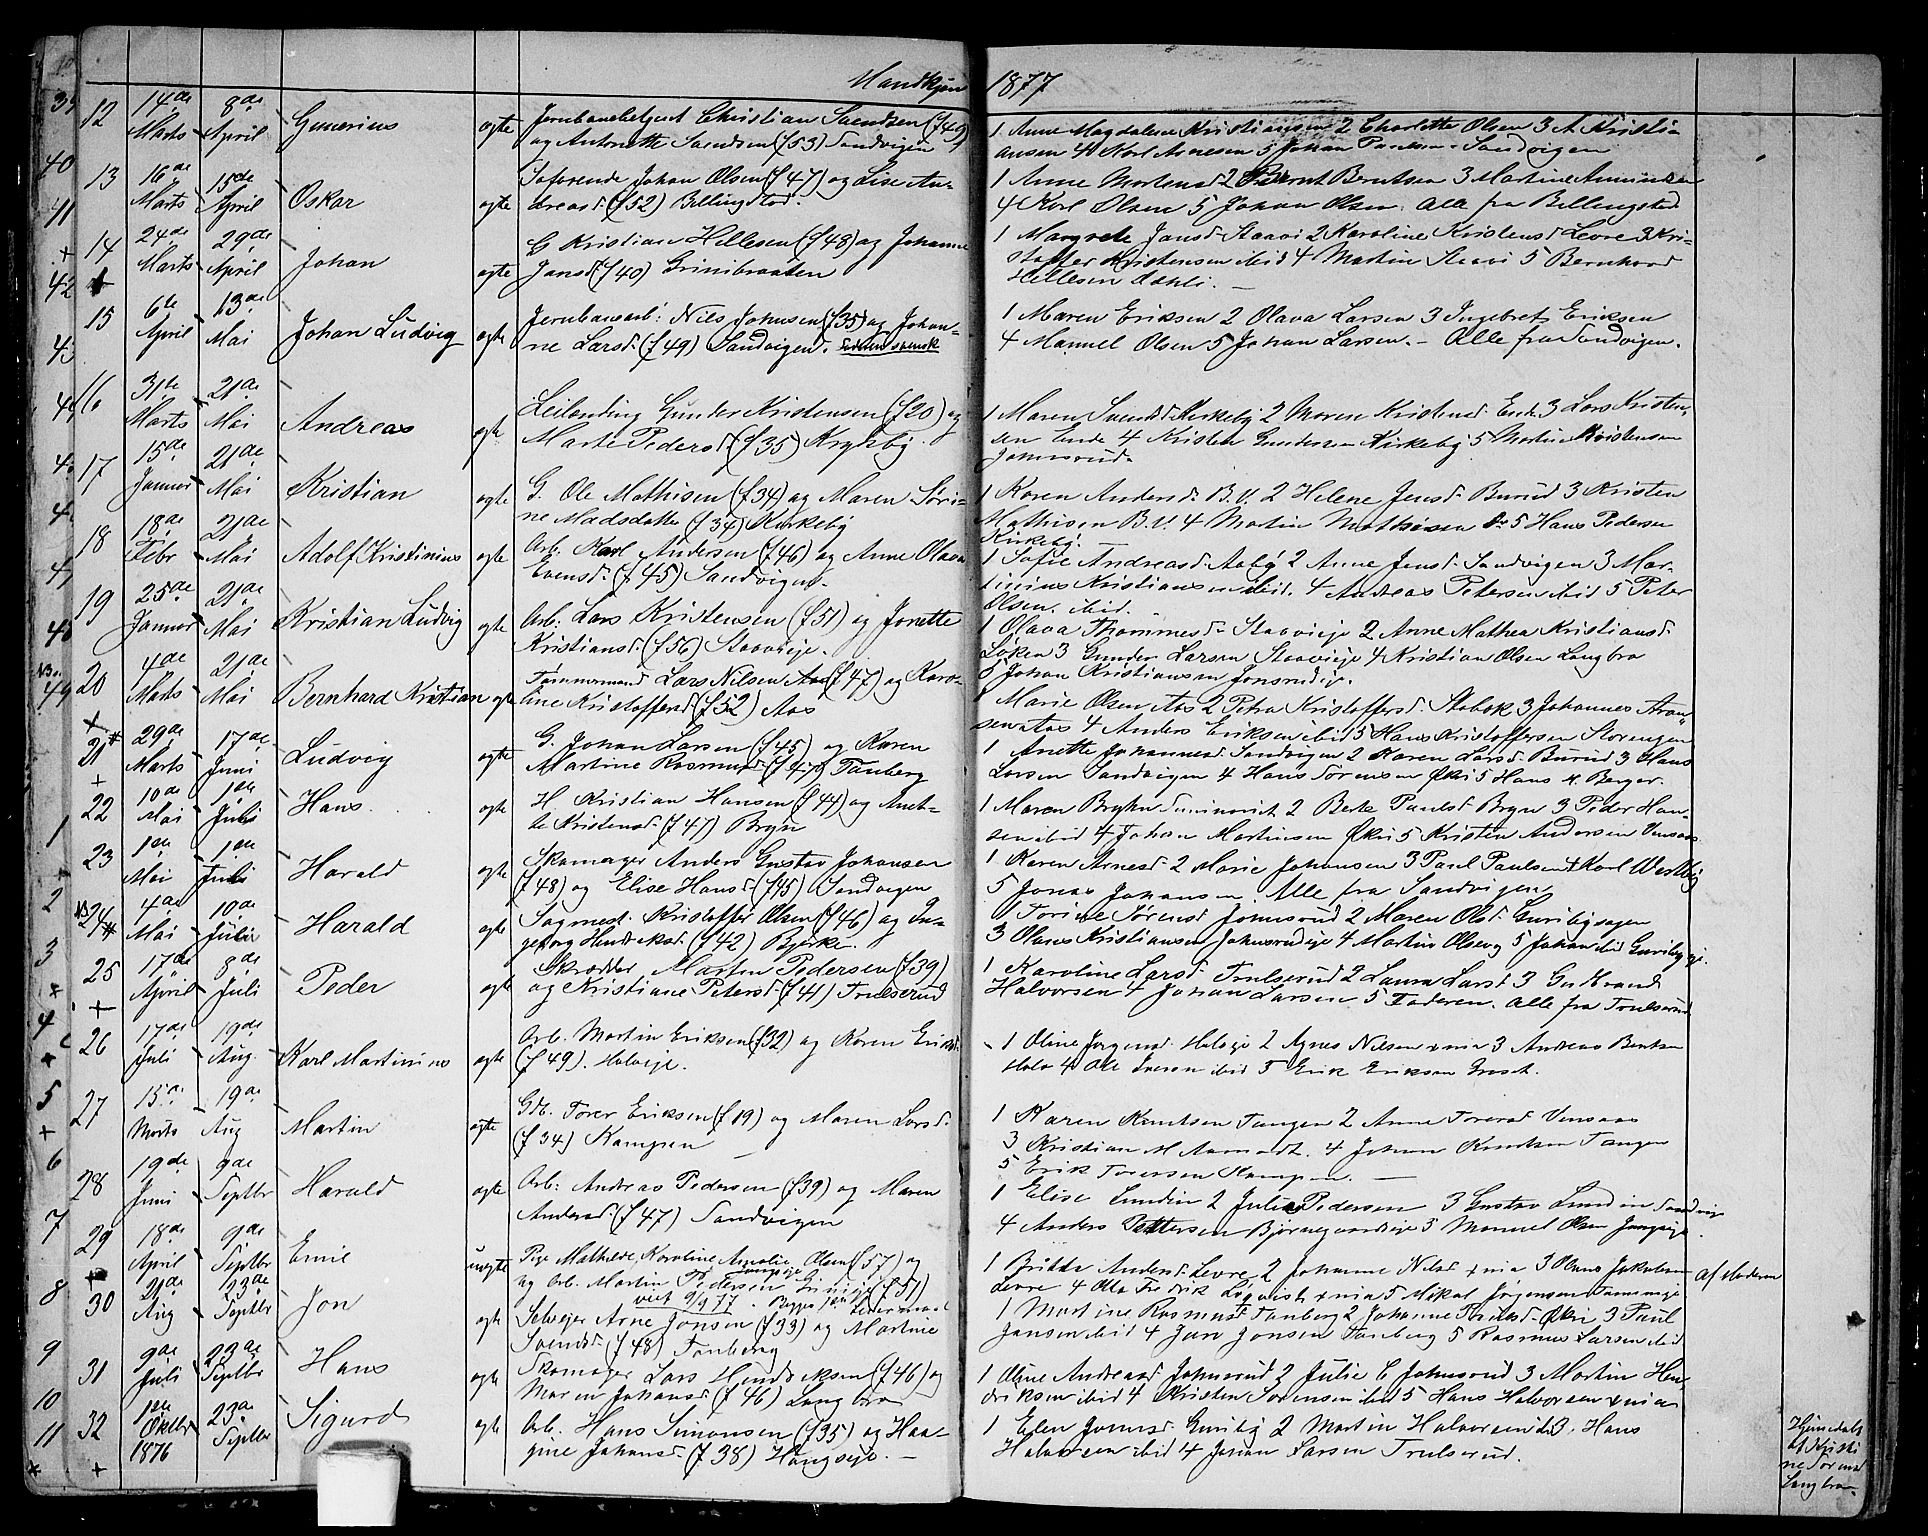 Mandkjøn 1877
12 14de Marts 8de April Gunerius ægte Jernbanebetjent Christian Svendsen (f 49)
og Antonette Svendsen (f53) Sandvigen
1 Anne Magdalene Kristiansen 2 Charlotte Olsen 3 A Kristi-
ansen 4 Karl Arnesen 5 Johan Paulsen - Sandvigen
13 16de Marts 15de April Oskar ægte Søfarende Johan Olsen (f 47) og Lise An-
dreasd. (f52) Billingstad.
1 Anne Mortensd 2 Bernt Berntsen 3 Martine Amundsen
4 Karl Olsen 5 Johan Olsen. Alle fra Billingstad
14 24de Marts 29de April Johan ægte G Kristian Hellesen (f48) og Johanne
Jansd (f40) Grinibraaten
1 Margrete Jansd Staavi 2 Karoline Kristensd Levre 3 Kri-
stoffer Kristensen ibid 4 Martin Staavi 5 Bernhard
Hellesen Dæhli. -
15 6te April 13de Mai Johan Ludvig ægte Jernbanearb: Nils Johnsen (f35) og Johan-
ne Larsd. (f49) Sandvigen. Faderen svensk
1 Maren Eriksen 2 Olava Larsen 3 Ingebret Eriksen
4 Manuel Olsen 5 Johan Larsen. - Alle fra Sandvigen.
16 31te Marts 21de Mai Andreas ægte Leilending Gunder Kristensen (f20) og
Marte Pedersd. (f35) Kirkeby
1 Maren Svendsd Kirkeby 2 Maren Kristensd. Ende 3 Lars Kristen-
sen Ende 4 Kristen Gundersen Kirkeby 5 Martin Kristensen
Johnsrud.
17 15de Januar 21de Mai Kristian ægte G. Ole Mathisen (f34) og Maren Søri-
ne Madsdatter (f34) Kirkeby
1 Karen Andersd. B.V. 2 Helene Jensd. Burud 3 Kristen
Mathisen B.V. 4 Martin Mathisen 5 Hans Pedersen
Kirkeby.
18 18de Febr 21de Mai Adolf Kristinius ægte Arb. Karl Andersen (f46) og Anne Olava
Evensd. (f45) Sandvigen.
1 Sofie Andreasd. Aaby 2 Anne Jensd. Sandvigen 3 Mar-
tinius Kristiansen ibid. 4 Andreas Petersen ibid 5 Peter
Olsen. ibid.
19 25de Januar 21de Mai Kristian Ludvig ægte Arb: Lars Kristensen (f51) og Jonette
Kristiansd. (f56) Staavieje.
1 Olava Thommesd. Staavieje 2 Anne Mathea Kristiansd.
Løken 3 Gunder Larsen Staavieje 4 Kristian Olsen Langbro
5 Johan Kristiansen Jonsrudeje.
20 4de Marts 21de Mai Bernhard Kristian ægte Tømmermand Lars Nilsen Aas (f47) og Karo-
line Kristoffersd (f52) Aas
1 Marie Olsen Aas 2 Petra Kristoffersd. Stabæk 3 Johannes Aron-
sen Aas 4 Anders Eriksen ibid 5 Hans Kristoffersen Storengen
21 29de Marts 17de Juni Ludvig ægte G. Johan Larsen (f45) og Karen
Martine Rasmusd. Tanberg
1 Anette Johannesd. Sandvigen 2 Karen Larsd. Burud 3 Hans
Larsen Sandvigen 4 Hans Sørensen Økri 5 Hans M. Berger.
22 10de Mai 1ste Juli Hans. ægte H. Kristian Hansen (f44) og Aneth-
te Kristensd. (f47) Bryn
1 Maren Bryhn Seminarist 2 Berte Paulsd. Bryn 3 Peder Han-
sen ibid 4 Johan Martinsen Økri 5 Kristen Andersen Vensaas
23 1ste Mai 1ste Juli Harald ægte Skomager Anders Gustav Johansen
(f48) og Elise Hansd. (f45) Sandvigen
1 Karen Arnesd. 2 Marie Johansen 3 Paul Paulsen 4 Karl Westby
5 Jonas Johansen. Alle fra Sandvigen
24 4de Mai 10de Juli Harald ægte Sagmest. Kristoffer Olsen (f46) og In-
geborg Hendriksd. (f42) Bjerke.
1 Torine Sørensd Johnsrud 2 Maren Olsd. Guribysagen
3 Olaus Kristiansen Johnsrudeje 4 Martin Olsen og 5 Johan ibid Gunbyeje.
25 17de April 8de Juli Peder ægte Skrædder Martin Pedersen (f39)
og Kristiane Petersd. (f41) Trulserud
1 Karoline Larsd Trulserud 2 Laura Larsd 3 Gulbrand
Halvorsen 4 Johan Larsen 5 Faderen. Alle fra Trulserud
26 17de Juli 19de Aug. Karl Martinius ægte Arb. Martin Eriksen (f32) og Karen Eriksd.
(f49). Haloeje.
1 Oline Jørgensd. Haloeje 2 Agnes Nilsen Xnia 3 Andreas Bentsen
Halo 4 Ole Iversen ibid 5 Erik Eriksen Greset.
27 15de Marts 19de Aug Martin ægte Gdb. Torer Eriksen (f19) og Maren Larsd.
(f34) Kampen
1 Karen Knutsen Tangen 2 Anne Torersd Vensaas
3 Kristian M Aamodt. 4 Johan Knudsen Tangen
5 Erik Torersen Kampen.
28 19de Juni 9de Septbr Harald ægte Arb: Andreas Pedersen (f39) og Maren
Andersd (f47) Sandvigen
1 Elise Lundin 2 Julie Pedersen 3 Gustav Lundin Sandvig
4 Anders Pettersen Bjørnegaardseje 5 Manuel Olsen Jongseje.
29 18de April 9de Septbr Emil uægte Pige Mathilde Karoline Amalie Olsen (f57) og
og Arb. Martin Pedersen Grinieje (f51)
viet 9/9 77.
1 Britte Andersd. Levre 2 Johanne Nilsd Xnia 3 Olaus Jakobsen
Levre 4 Otto Fredrik Løqvist Xnia 5 Mikal Jørgensen
Af Moderen
30 21de Aug 23de Septbr Jon ægte Selveier Arne Jonsen (f33) og Martine
Svendsd. (f48) Tanberg
1 Martine Rasmusd Tanberg 2 Johanne Økri 3 Paul
Jansen ibid 4 Jan Jonsen Tanberg 5 Rasmus Larsen ibid
31 9de Juli 23de Septbr Hans ægte Skomager Lars Hendriksen (f46) og
Maren Johansd. (f46) Langbro
1 Oline Andreasd Johnsrud 2 Julie C Johnsrud 3 Martin Hen-
driksen ibid 4 Kristen Sørensen ibid 5 Hans Halvorsen Xnia
32 1ste Oktbr 1876 23de Septbr Sigurd ægte Arb. Hans Simonsen (f35) og Haa-
gine Johansd. (f38) Haugseje. -
1 Elen Jonsd. Guriby 2 Martin Halvorsen ibid 3. Hans
Halvorsen ibid 4 Johan Larsen Trulserud.
Hjemdøbt
af Kristi
ne
Langbro